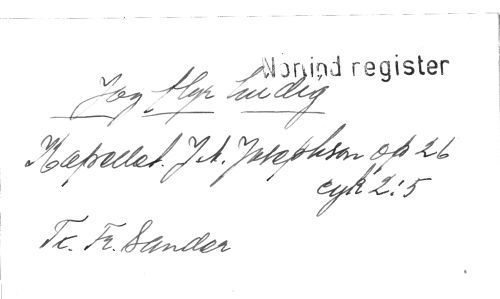 Norind register
Jag flyr
Kapellet. J.A. Josephson op 26
cyk 2:5
Tc. Fr. Sander